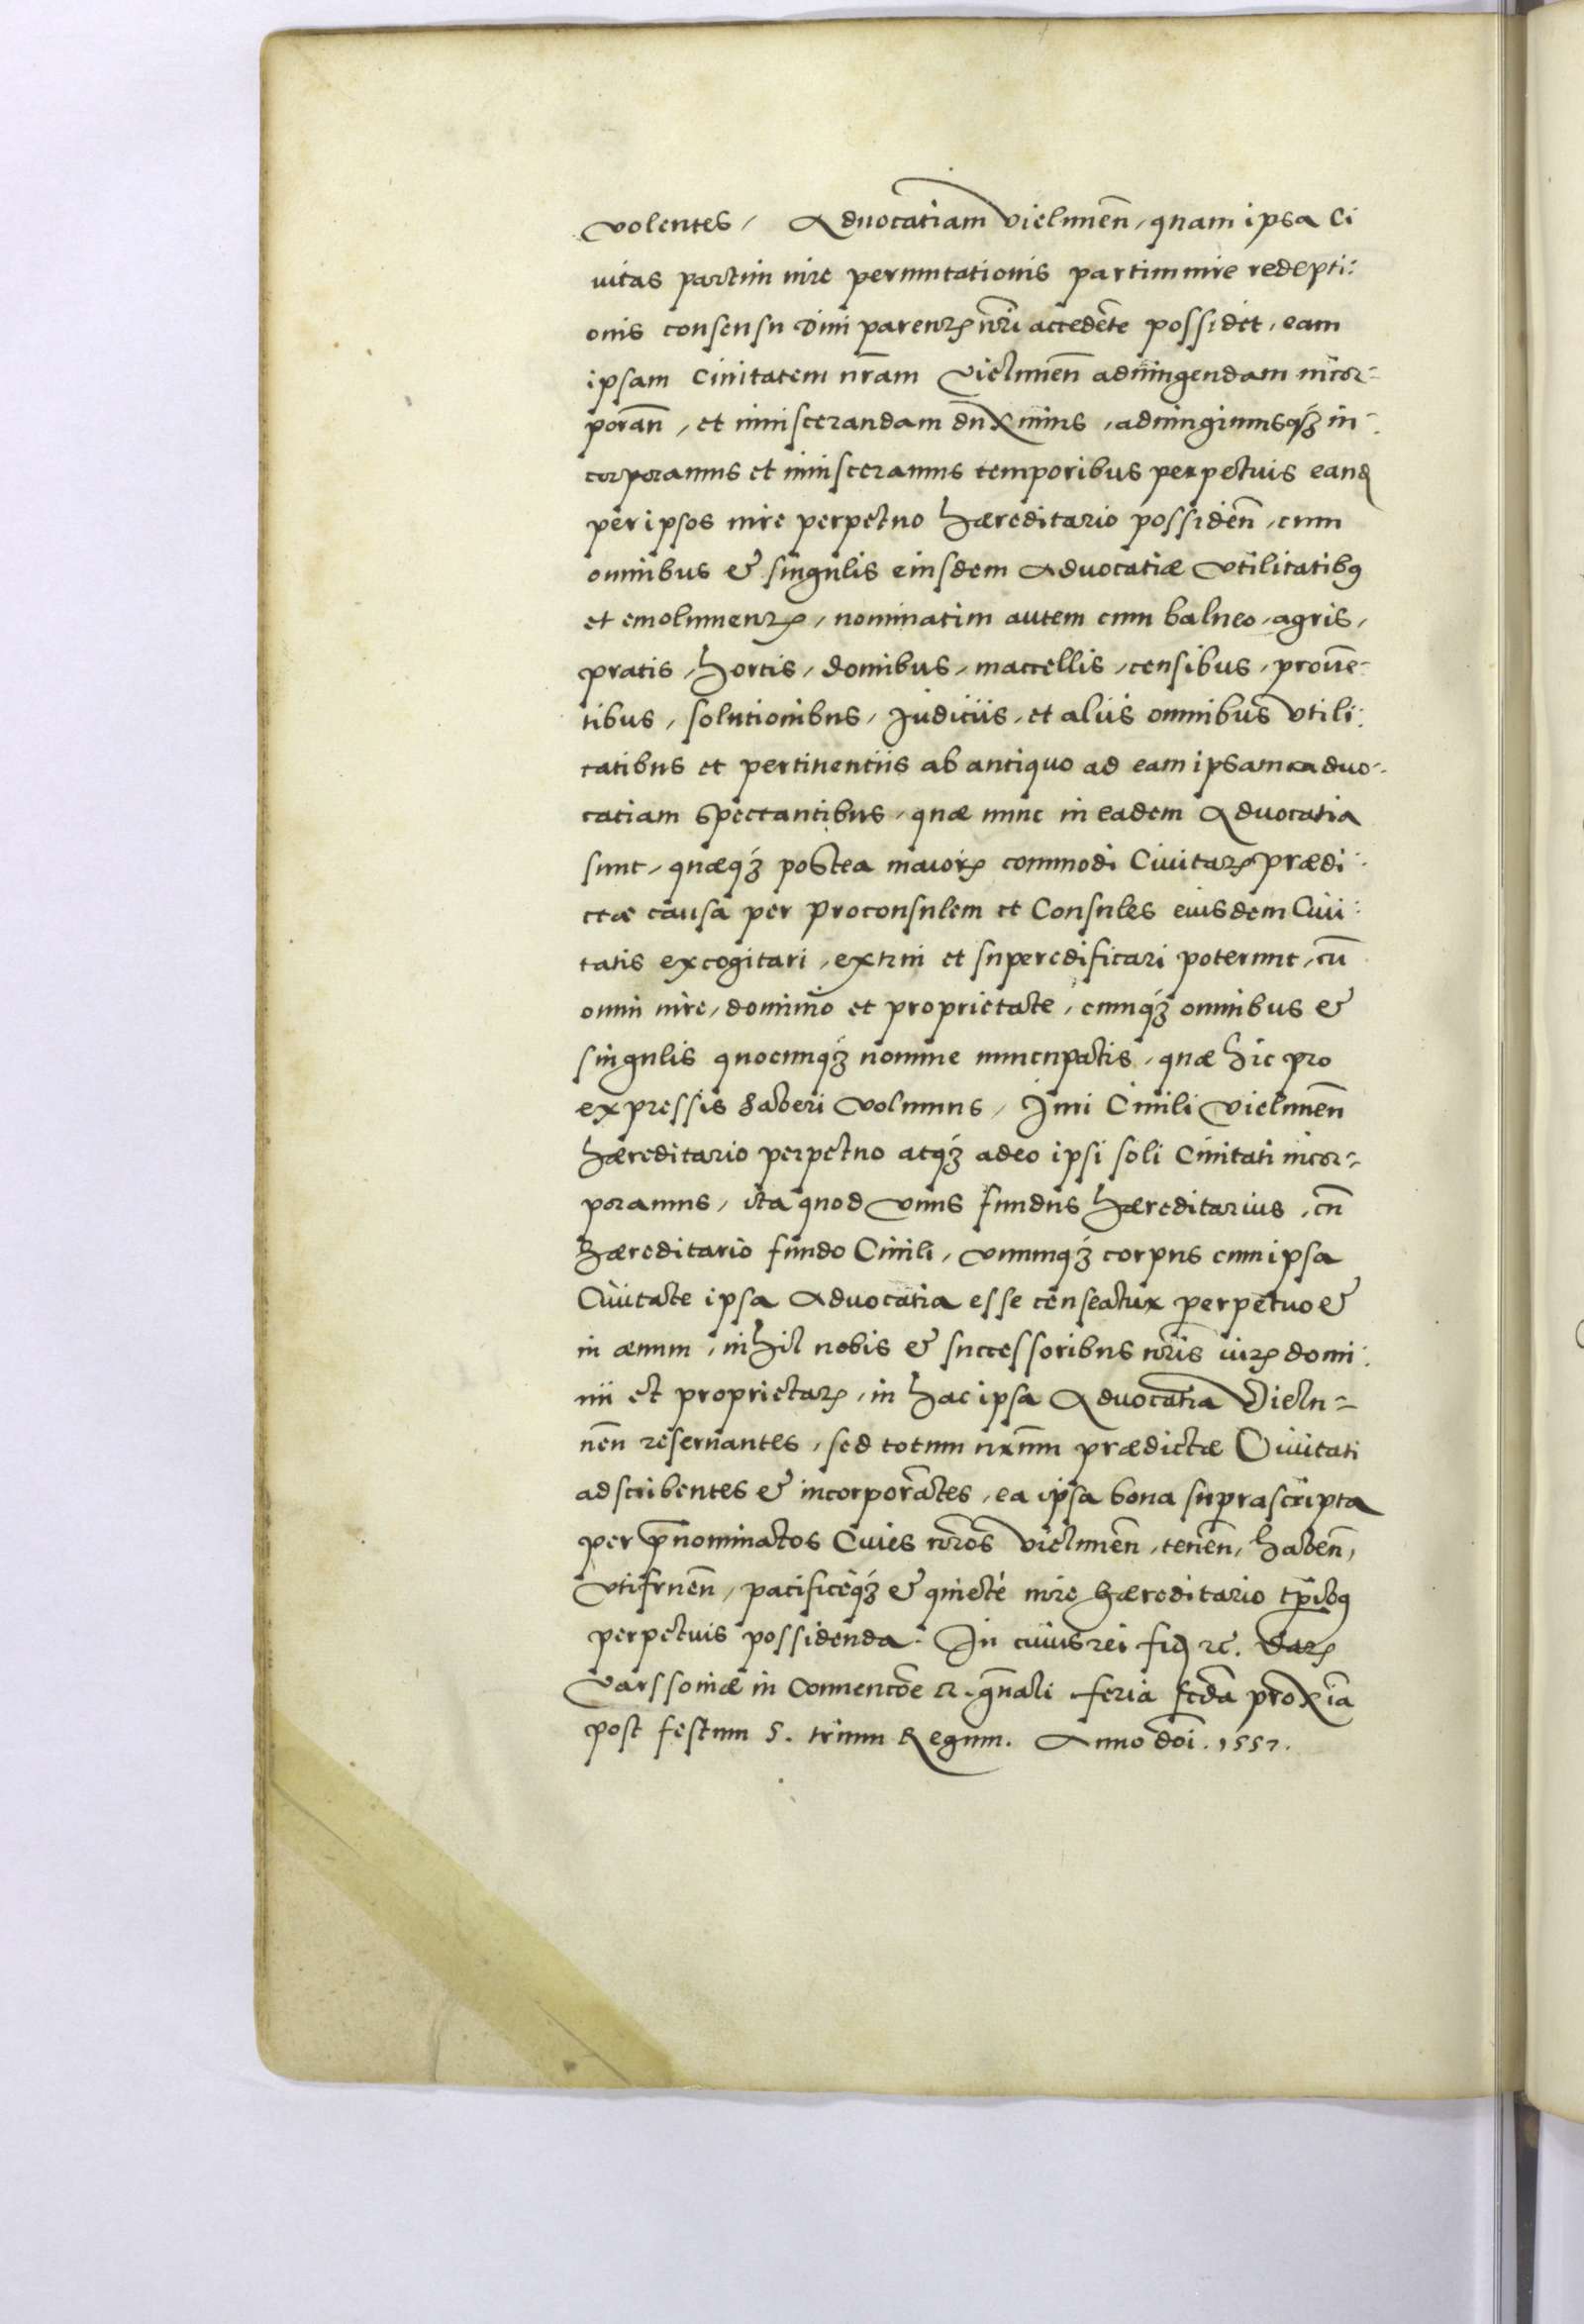 volentes, Aduocatiam Vielunen̄, quam ipsa Ci
uitas partim iure permutationis partim iure redepti:
onis consensu Diui parentꝭ nr̄i accedēte possidet, eam
ipsam Ciuitatem nr̄am Vielunen̄ adiungendam incor=
poran̄, et inuiscerandam duximus, adiungimusqꝫ in=
corporamus et inuisceramus temporibus perpetuis eandꝫ
per ipsos iure perpetuo hæreditario possiden̄, cum
omnibus & singulis eiusdem Aduocatiæ vtilitatibꝯ
et emolumentꝭ, nominatim autem cum balneo, agris,
pratis, hortis, domibus, maccellis, censibus, prouē=
tibus, solutionibus, Judiciis, et aliis omnibus vtili:
tatibus et pertinentiis ab antiquo ad eam ipsam aduo=
catiam spectantibus, quæ nunc in eadem Aduocatia
sunt, quæqꝫ postea maiorꝭ commodi Ciuitatꝭ prædi:
ctæ causa per Proconsulem et Consules eiusdem Ciui:
tatis excogitari, extrui et superedificari poterunt, cū
omni iure, dominio et proprietate, cumqꝫ omnibus &
singulis quocunqꝫ nomine nuncupatis, quæ hic pro
expressis haberi volumus, Juri Ciuili Vielunen̄
hæreditario perpetuo atqꝫ adeo ipsi soli Ciuitati incor=
poramus, ita quod vnus fundus hæreditarius, cū
hæreditario fundo Ciuili, vnumqꝫ corpus cum ipsa
Ciuitate ipsa Aduocatia esse censeatur perpetuo &
in æuum, nihil nobis & successoribus nr̄is iurꝭ domi:
nii et proprietatꝭ, in hac ipsa Aduocatia Vielu=
nen̄ reseruantes, sed totum nr̄um prædictæ Ciuitati
adscribentes & incorporātes, ea ipsa bona suprascripta
per p̄nominatos Ciues nr̄os Vielunen̄, tenen̄, haben̄,
vtifruen̄, pacificeqꝫ & quiete iure hæreditario tp̄ibꝯ
perpetuis possidenda. In cuius rei fidꝫ ⁊c. Datꝭ
Varssouiæ in Conuentōe R. gn̄ali feria scd̄a proxīa
post festum S. trium Regum. Anno dōi. 1557.